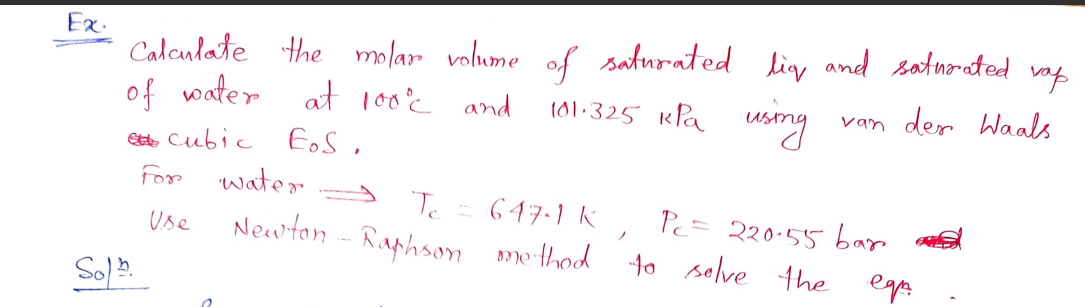 Ex.
Calculate the molar volume of saturated liq and saturated vap
of water at 100°C and 101.325 kPa using van der Waals
cubic EoS.
For water ⟹ Tc = 647.1 K, Pc = 220.55 bar
Use Newton-Raphson method to solve the eqn.
Solⁿ.